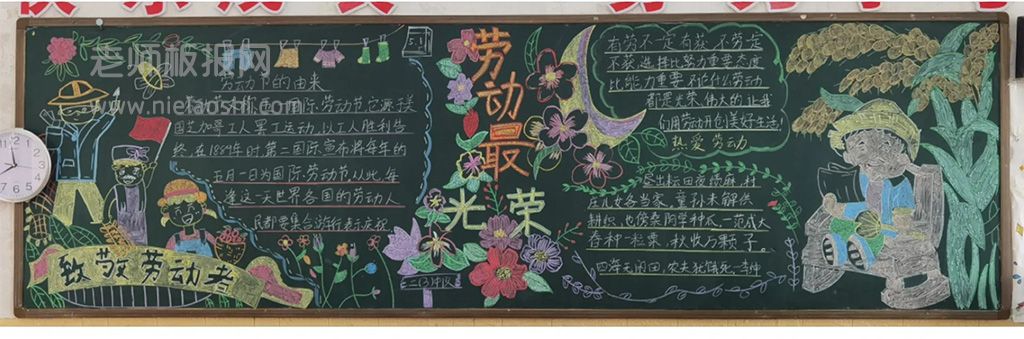 老师板报网
www.nielaoshi.com
5·1
劳动节的由来
国际劳动节,它源送
国芝加哥工人罢工运动,以工人胜利告
终,在1889年时,第二国际宣布将每年的
五月一日为国际劳动节从此,每
逢这一天世界各国的劳动人
民都要集会游行表示庆祝
致敬劳动者
劳动最
光荣
二(3)中队
有劳不一定有获,不劳定
不获,选择比努力重要态度
比能力重要,不论什么劳动
都是光荣、伟大的,让我
们用劳动开创美好生活!
热爱劳动
昼出耘田夜绩麻,村
庄儿女各当家,童孙未解供
耕织,也傍桑阴学种瓜,范成大
春种一粒粟,秋收万颗子。
四海无闲田,农夫犹饿死,李绅